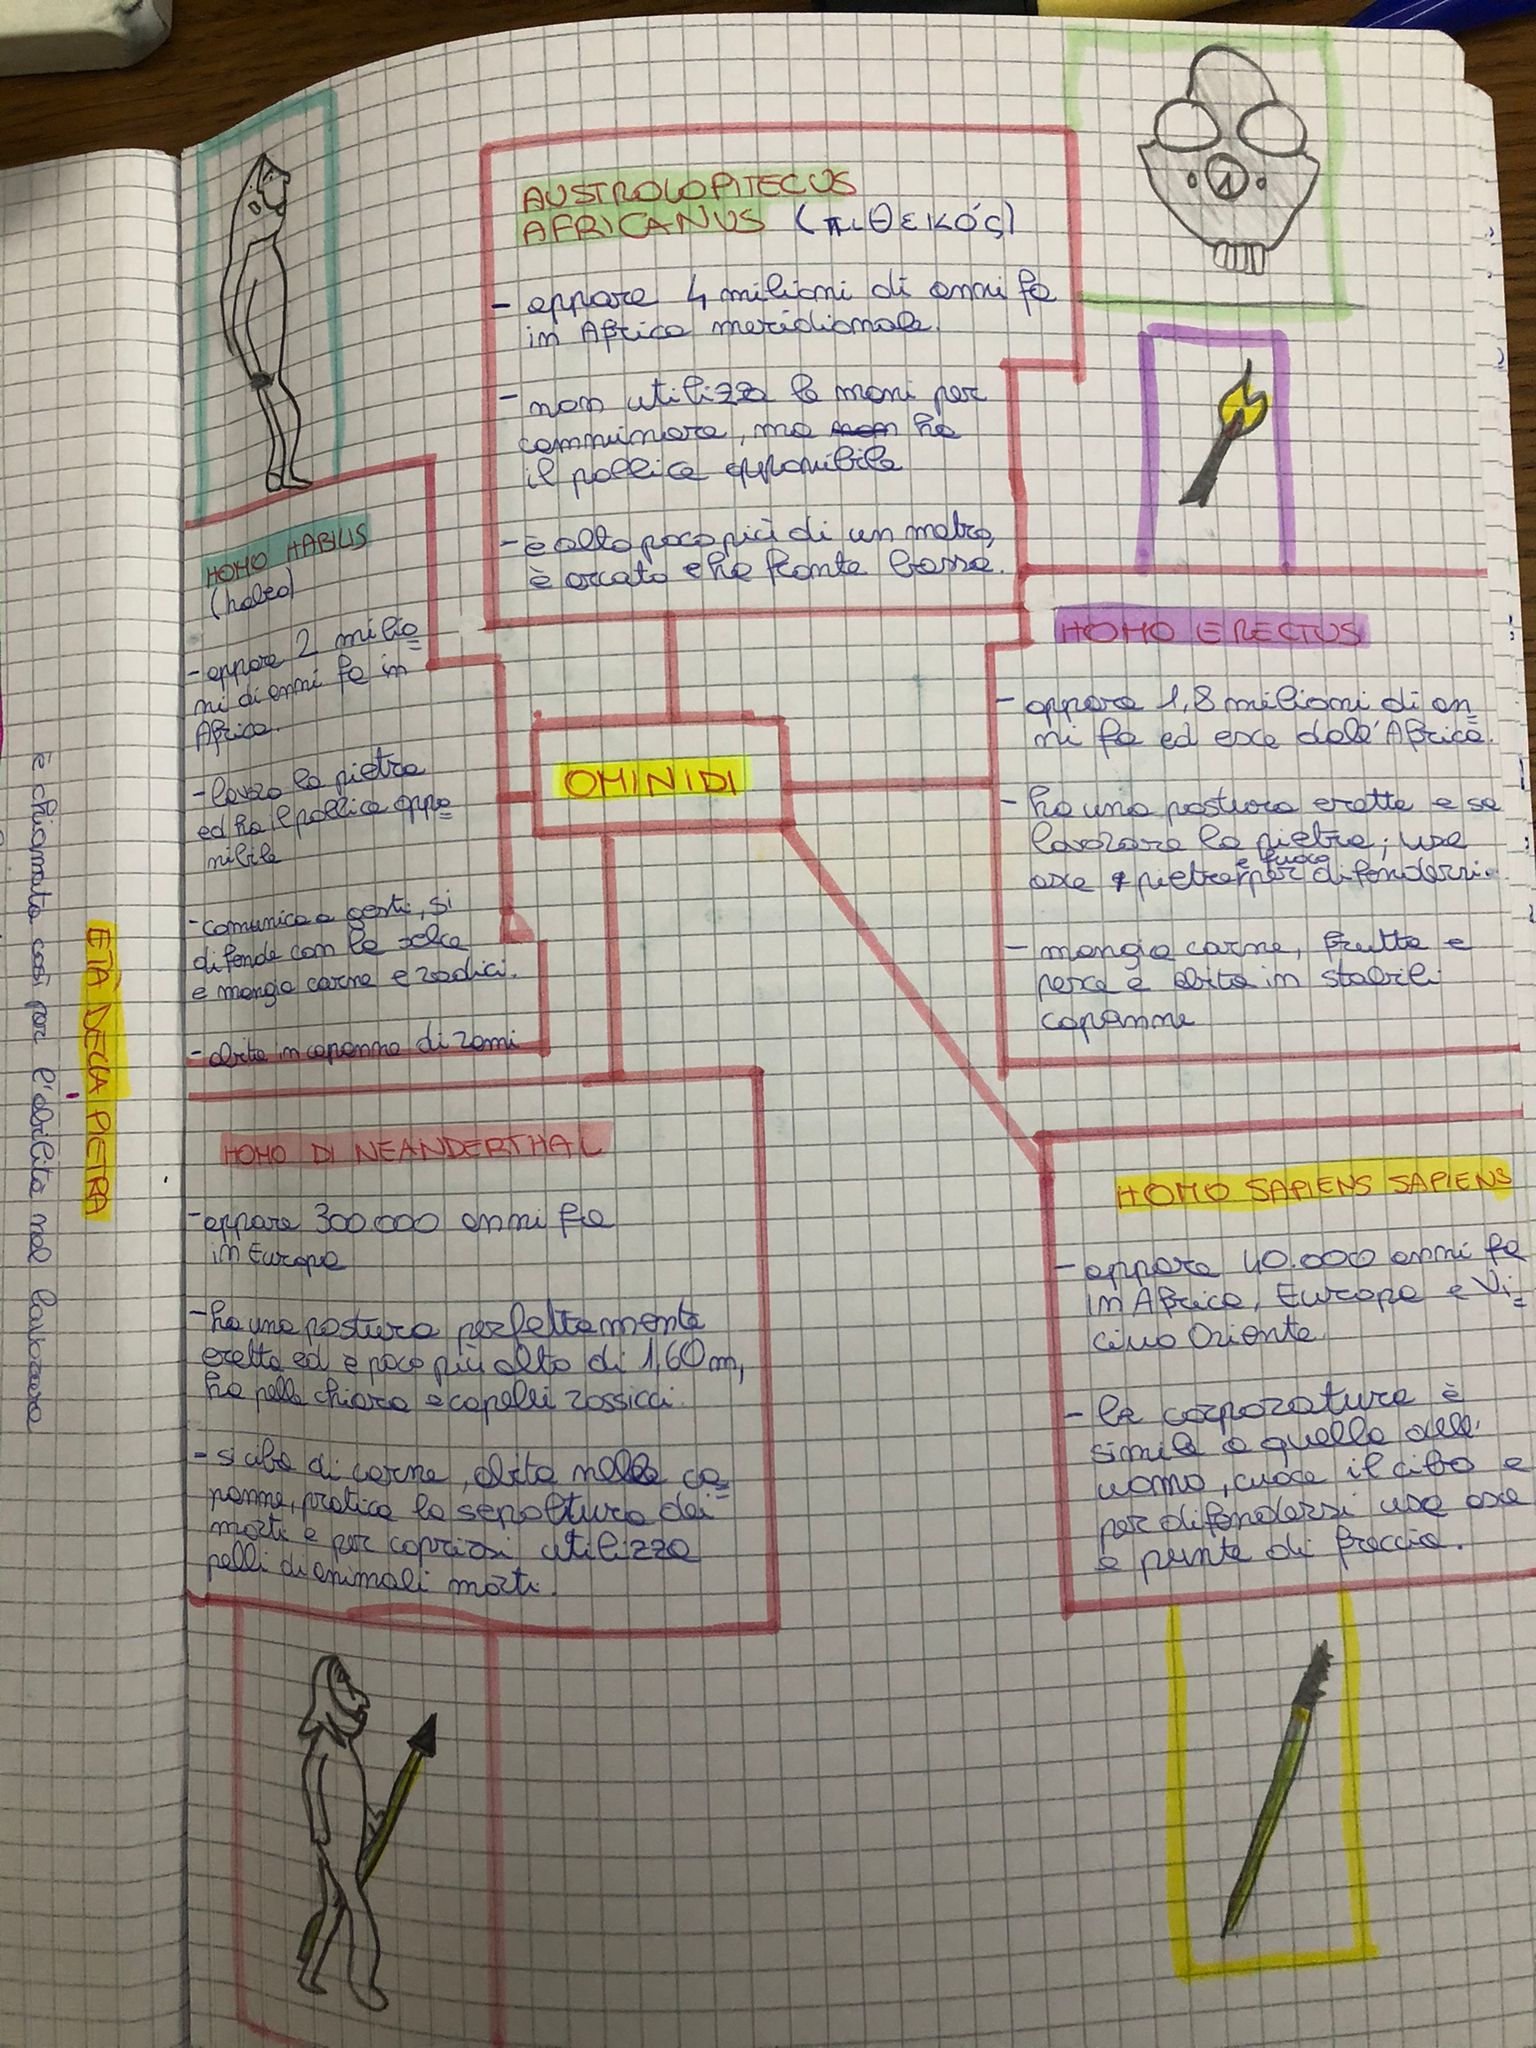 AUSTROLOPITECUS
AFRICANUS (πιθεικός)
- appare 4 milioni di anni fa
in Africa meridionale.
- non utilizza le mani per
camminare, ma non ha
il pollice opponibile
- è alto poco più di un metro,
è arcato e ha fronte bassa.
HOMO HABILIS
(habeo)
- appare 2 milio=
ni di anni fa in
Africa.
- lavora la pietra
ed ha il pollice oppo=
nibile
- comunica a gesti, si
difende con la selce
e mangia carne e radici.
- abita in capanne di rami
OMINIDI
HOMO ERECTUS
- appare 1,8 milioni di an=
ni fa ed esce dall'Africa.
- ha una postura eretta e sa
lavorare la pietra; usa
e fuoco
asce e pietra per difendersi.
- mangia carne, frutta e
pesca e abita in stabili
capanne
HOMO DI NEANDERTHAL
- appare 300.000 anni fa
in Europa
- ha una postura perfettamente
eretta ed è poco più alto di 1,60 m,
ha pelle chiara e capelli rossicci.
- si ciba di carne, abita nelle ca=
panne, pratica la sepoltura dei
morti e per coprirsi utilizza
pelli di animali morti.
HOMO SAPIENS SAPIENS
- appare 40.000 anni fa
in Africa, Europa e Vi=
cino Oriente
- la corporatura è
simile a quella dell'
uomo, cuoce il cibo e
per difendersi usa asce
e punte di freccia.
ETÀ DELLA PIETRA
è chiamata così per l'abilità nel lavorare